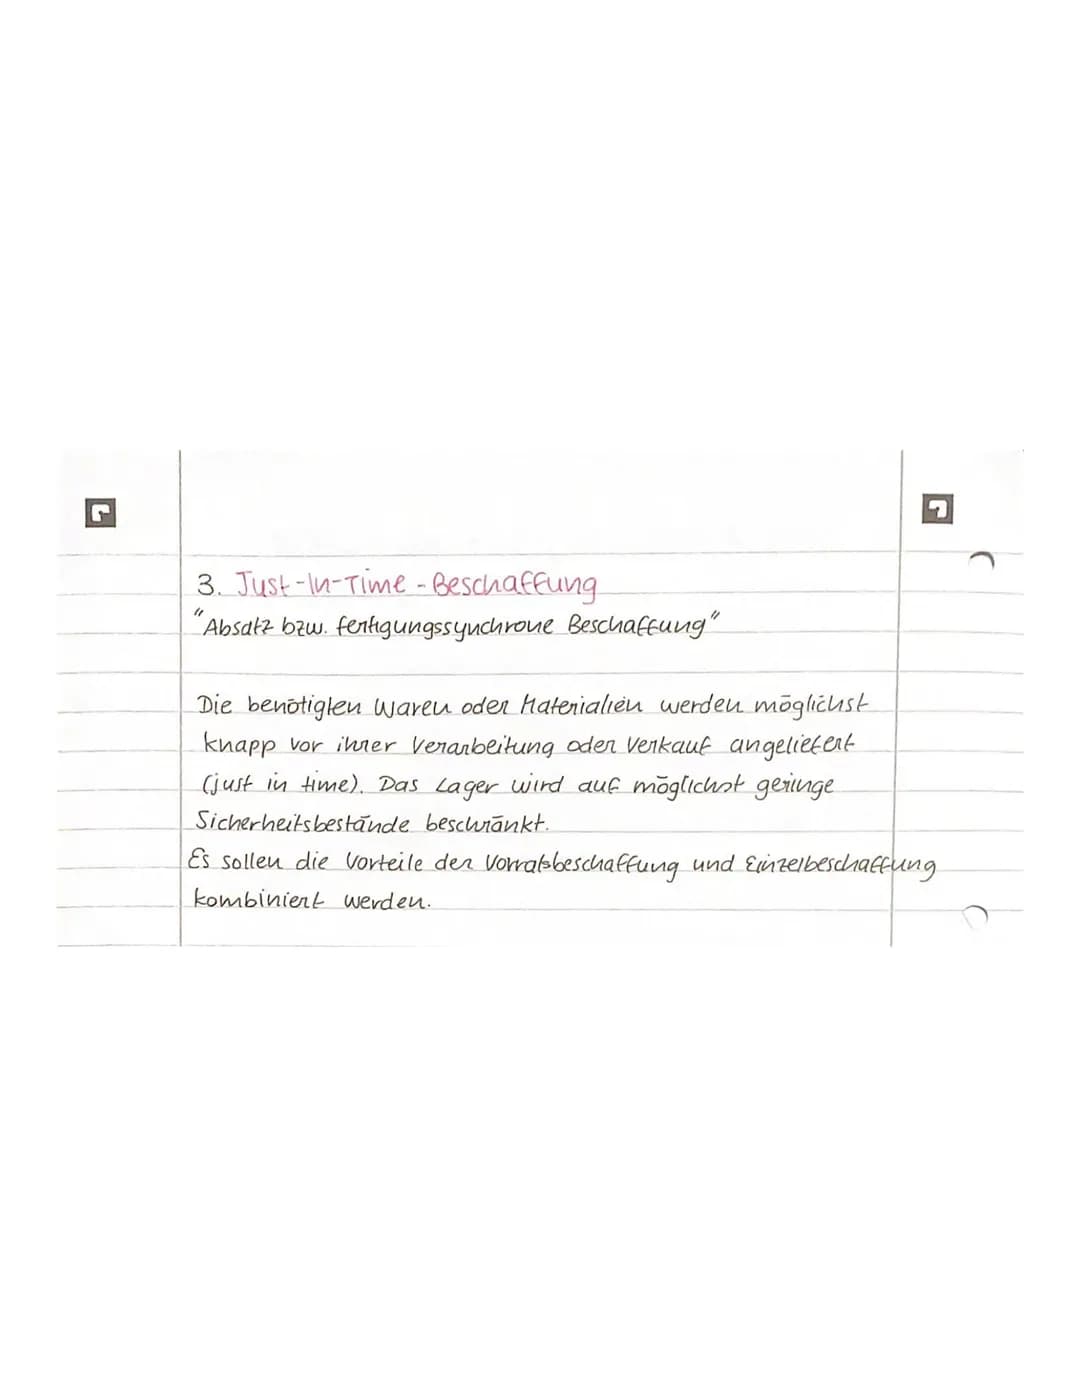 3. Just-In-Time-Beschaffung
"Absatz bzw. fertigungssynchrone Beschaffung"
Die benötigten Waren oder Materialien werden möglichst
knapp vor ihrer Verarbeitung oder Verkauf angeliefert
(just in time). Das Lager wird auf möglichst geringe
Sicherheitsbestände beschränkt.
Es sollen die Vorteile der Vorratsbeschaffung und Einzelbeschaffung
kombiniert werden.